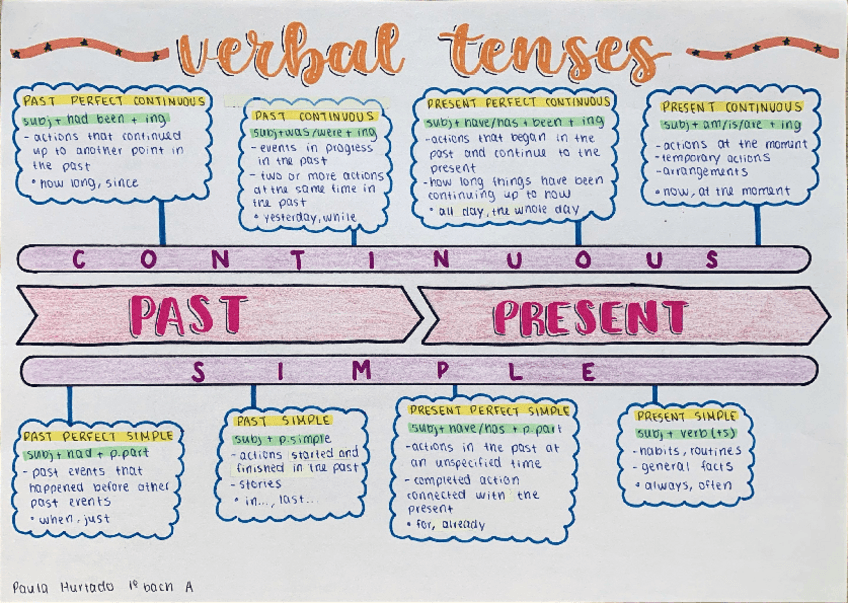 verbal tenses
PAST PERFECT CONTINUOUS
subj + had been + ing
- actions that continued
up to another point in
the past
• how long, since
PAST CONTINUOUS
subj+was/were + ing
- events in progress
in the past
- two or more actions
at the same time in
the past
• yesterday, while
PRESENT PERFECT CONTINUOUS
subj + have/has + been + ing
- actions that began in the
past and continue to the
present
- how long things have been
continuing up to now
• all day, the whole day
PRESENT CONTINUOUS
subj + am/is/are + ing
- actions at the moment
- temporary actions
- arrangements
• now, at the moment
CONTINUOUS
PAST
PRESENT
SIMPLE
PAST PERFECT SIMPLE
subj + had + p.part
- past events that
happened before other
past events
• when, just
PAST SIMPLE
subj + p.simple
- actions started and
finished in the past
- stories
• in..., last...
PRESENT PERFECT SIMPLE
subj + have/has + p.part
- actions in the past at
an unspecified time
- completed action
connected with the
present
• for, already
PRESENT SIMPLE
subj + verb (+s)
- habits, routines
- general facts
• always, often
Paula Hurtado 1º bach A